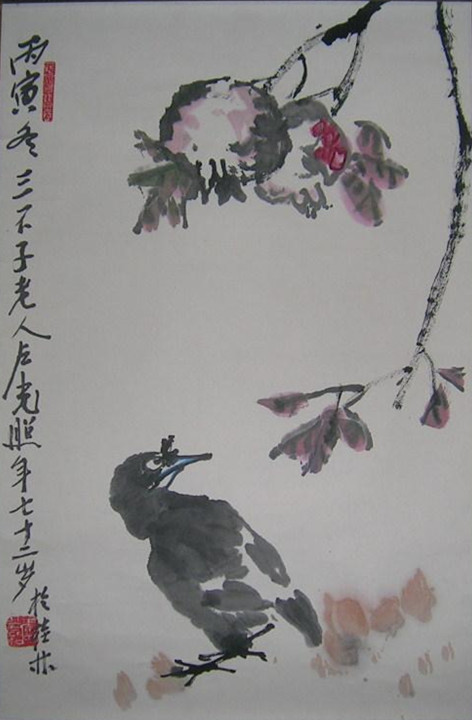 丙寅冬三不子老人占光照年七十二岁
于桂林